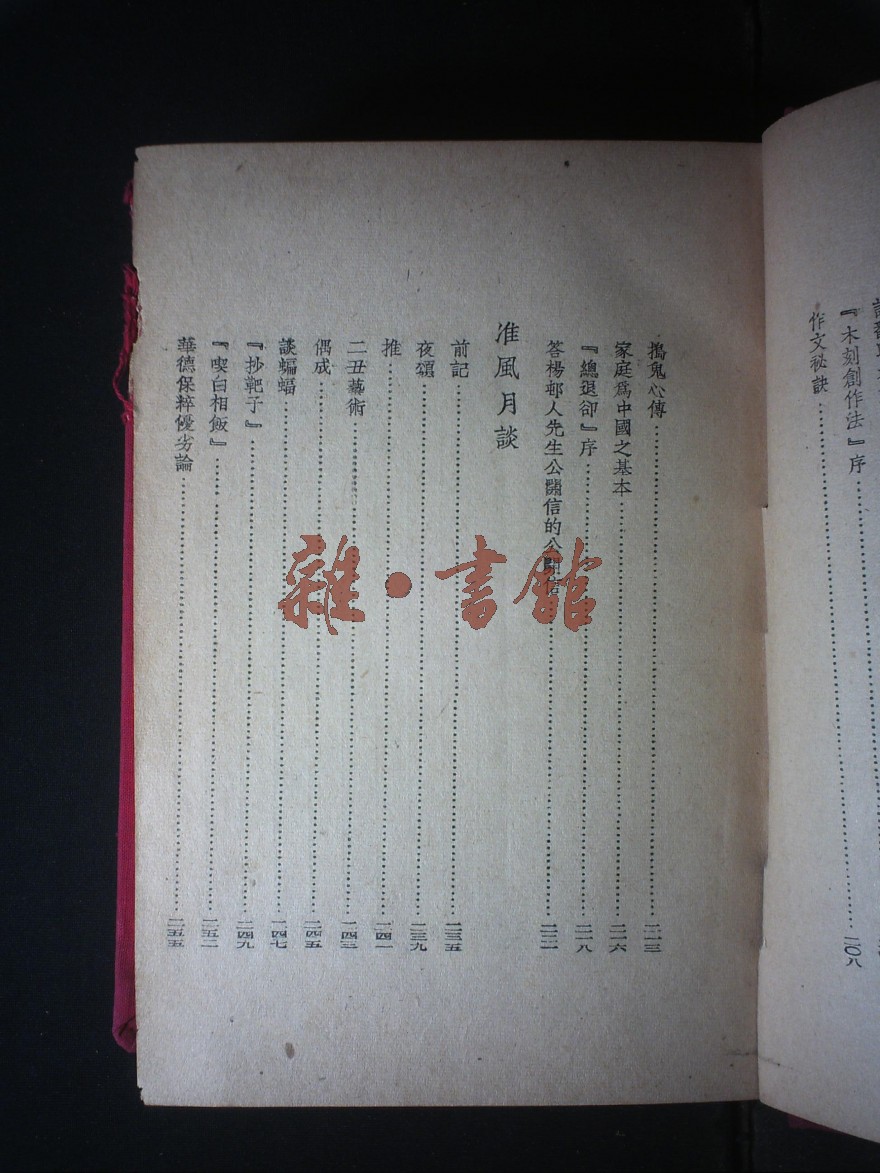 『木刻創作法』序
作文秘訣……二〇八
搗鬼心傳……二一三
家庭爲中國之基本……二一六
『總退卻』序……二一八
答楊邨人先生公開信的公開信……
准風月談
前記……二三五
夜頌……二三九
推……二四一
二丑藝術……二四三
偶成……二四五
談蝙蝠……二四七
『抄靶子』……二四九
『喫白相飯』……二五二
華德保粹優劣論……二五五
雜·書館